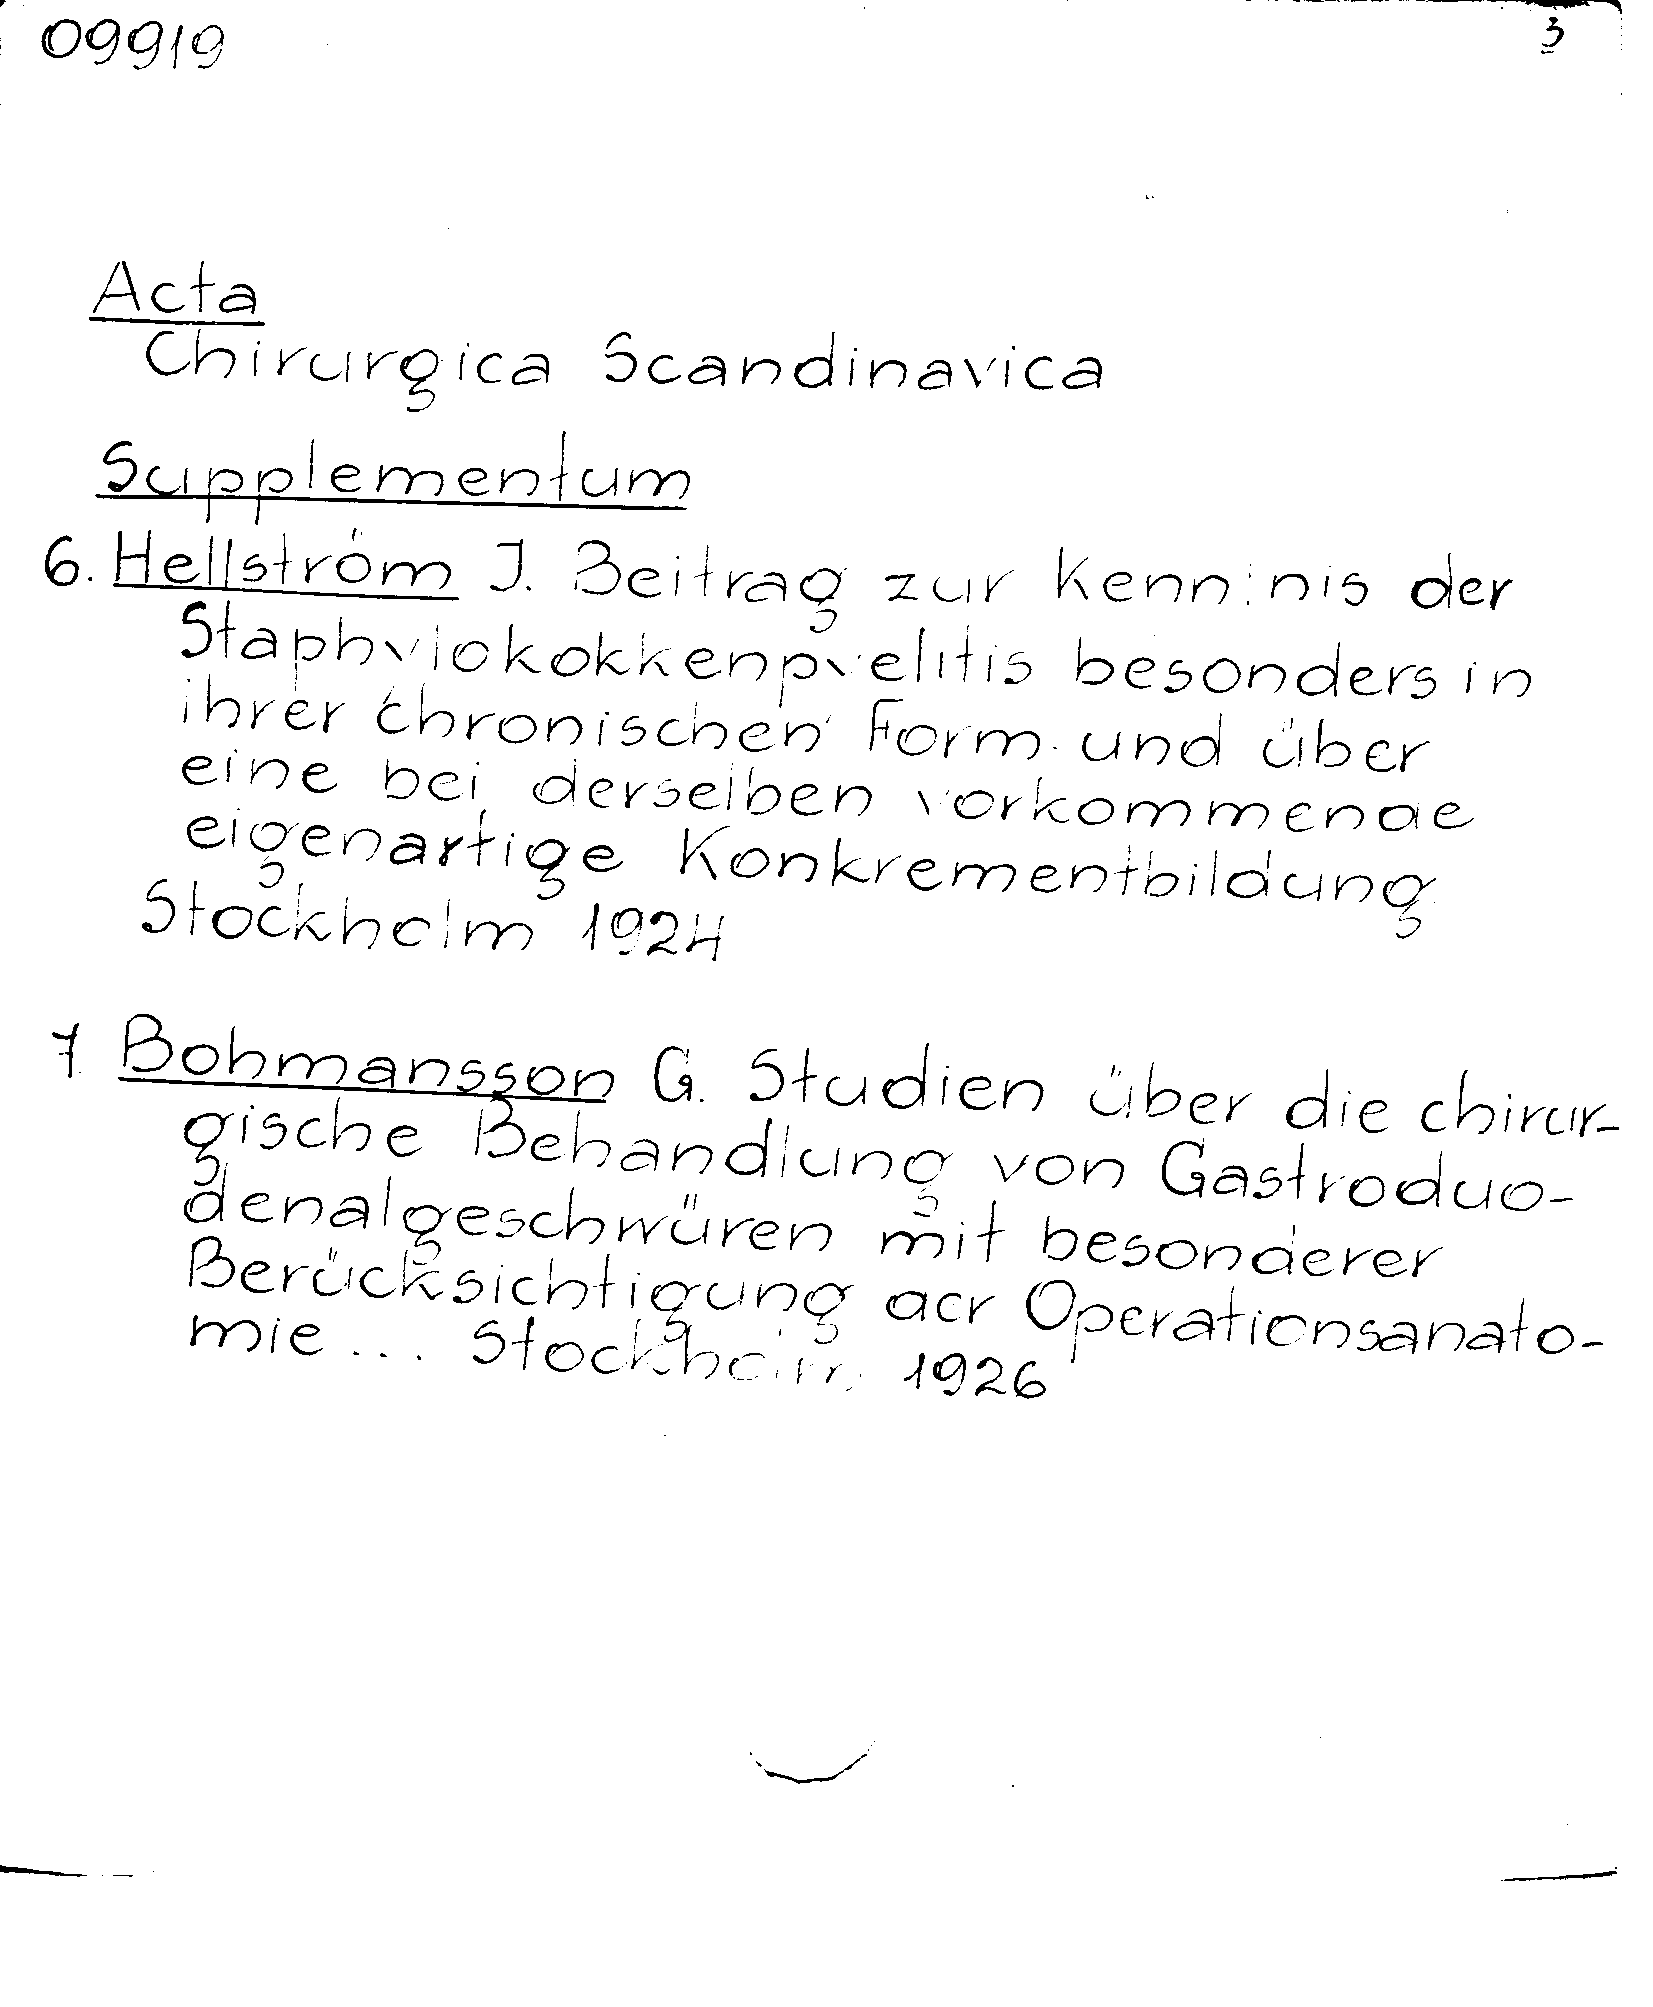 09919
3
Acta
Chirurgica Scandinavica
Supplementum
6. Hellström J. Beitrag zur Kenntnis der
Staphylokokkenpyelitis besonders in
ihrer chronischen Form und über
eine bei derselben vorkommende
eigenartige Konkrementbildung
Stockholm 1924
7 Bohmansson G. Studien über die chirur-
gische Behandlung von Gastroduo-
denalgeschwüren mit besonderer
Berücksichtigung der Operationsanato-
mie... Stockholm 1926